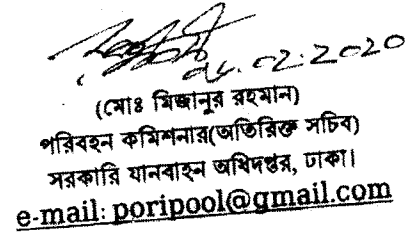 .02.2020
(মোঃ মিজানুর রহমান)
পরিবহন কমিশনার(অতিরিক্ত সচিব)
সরকারি যানবাহন অধিদপ্তর, ঢাকা।
e-mail: poripool@gmail.com